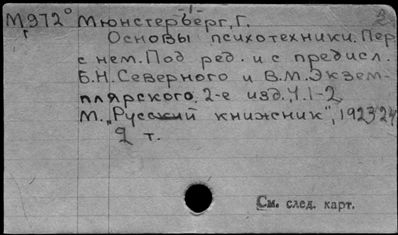 М972° Мюнстерберг, Г.
Основы психотехники. Пер.
с нем. Под ред. и с предисл.
Б.Н. Северного и В.М. Экзем-
плярского. 2-е изд., ч. 1-2,
М. "Русский книжник", 1923 24
2 т.
См. след. карт.